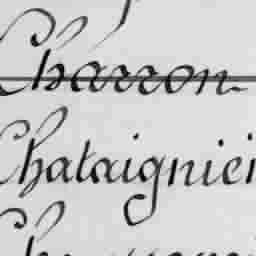 Charron
Chataignier